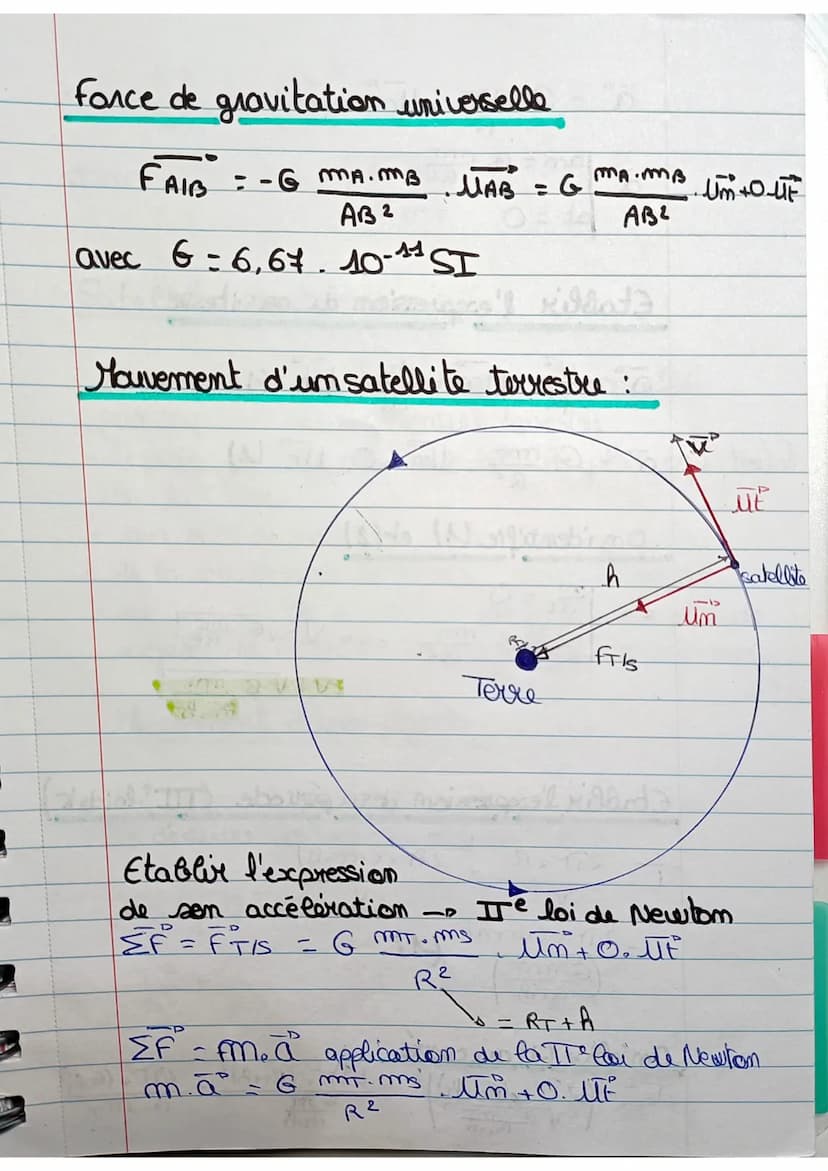 Force de gravitation universelle
F⃗A/B = -G mA.mB/AB² . u⃗AB = G mA.mB/AB² . u⃗n + 0 u⃗t
avec G = 6,67 . 10⁻¹¹ SI
Mouvement d'un satellite terrestre :
v⃗
u⃗t
h
satellite
u⃗n
RT
FT/S
Terre
Etablir l'expression
de son accélération → IIᵉ loi de Newton
ΣF⃗ = F⃗T/S = G mT.mS/R² . u⃗n + 0. u⃗t
= RT + h
ΣF⃗ = m.a⃗ application de la IIᵉ loi de Newton
m.a⃗ = G mT.mS/R² . u⃗n + 0. u⃗t